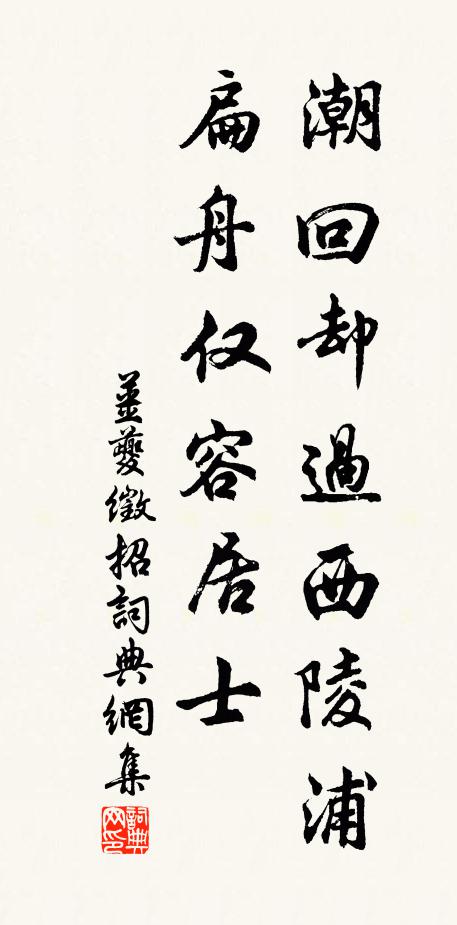 潮回却過西陵浦
扁舟仅容居士
姜夔徵招詞典網集
詞典网印